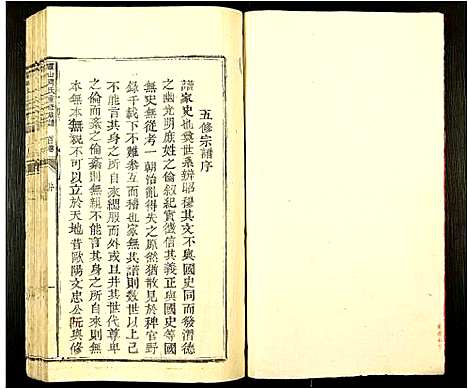 五修宗譜序
譜家史也奠世系辨昭穆其文不與國史同然潛德
之幽光明庶姓之倫叙紀實徵信其義正與國史等國
無史無從考一朝治亂得失之原然猶散見於稗官野
錄千載下不難叅互而稽也家無其譜則數世以上已
不能言其身之所自來緦服而外或且其世代尊卑
之倫而紊之倫紊則無親不能言其身之所自來則無
本無本無親不可以立於天地昔歐陽文忠公阮與修